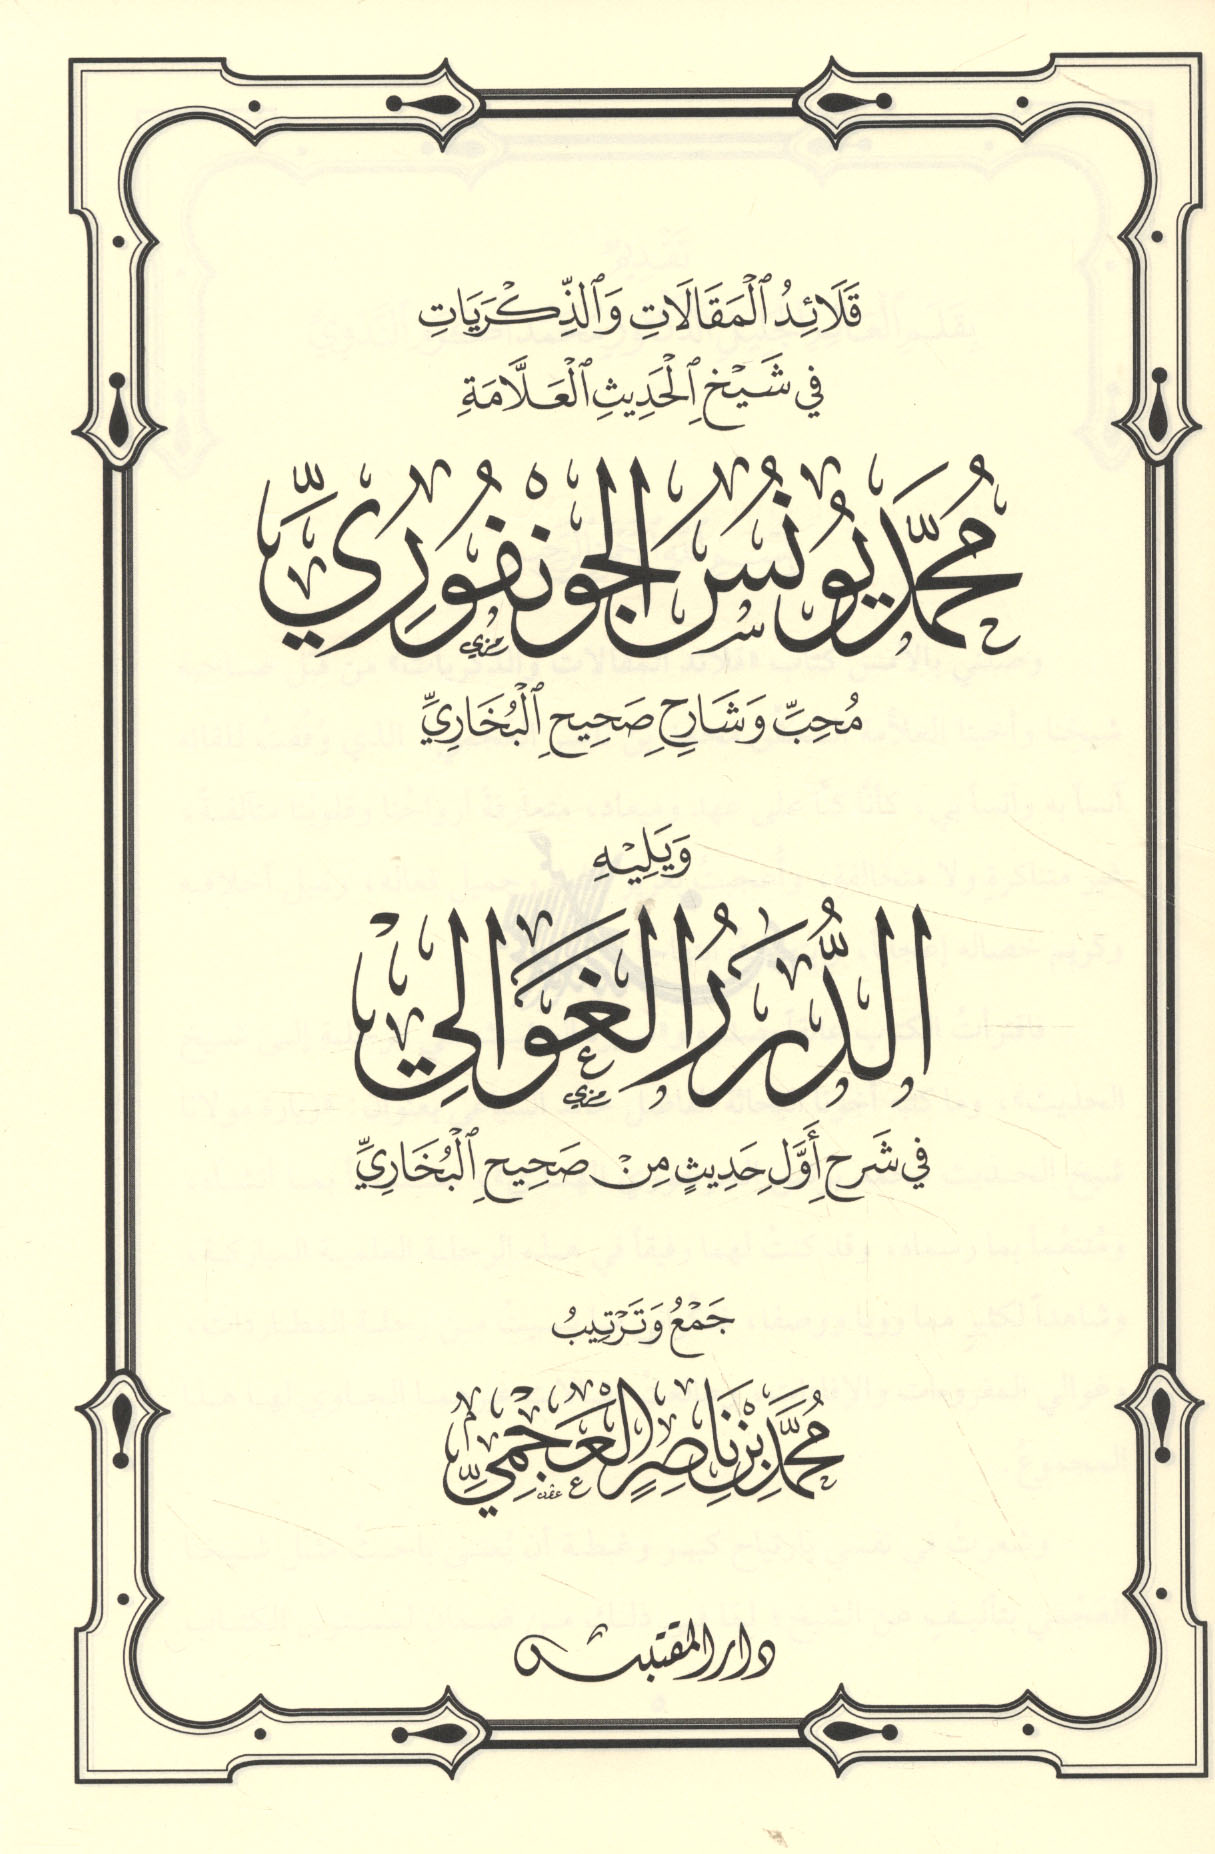 قَلَائِدُ ٱلْمَقَالَاتِ وَٱلذِّكْرَيَاتِ
فِي شَيْخِ ٱلْحَدِيثِ ٱلْعَلَّامَةِ
مُحَمَّد يُونُسَ الجَونْفُورِيِّ
مُحِبِّ وَشَارِحِ صَحِيحِ ٱلْبُخَارِيِّ
وَيَلِيْهِ
الدُّرَرُ الغَوَالِي
فِي شَرْحِ أَوَّلِ حَدِيثٍ مِنْ صَحِيحِ ٱلْبُخَارِيِّ
جَمْعُ وَتَرْتِيبُ
مُحَمَّدِ بْنِ نَاصِرٍ العَجْمِيِّ
دار المقتبس